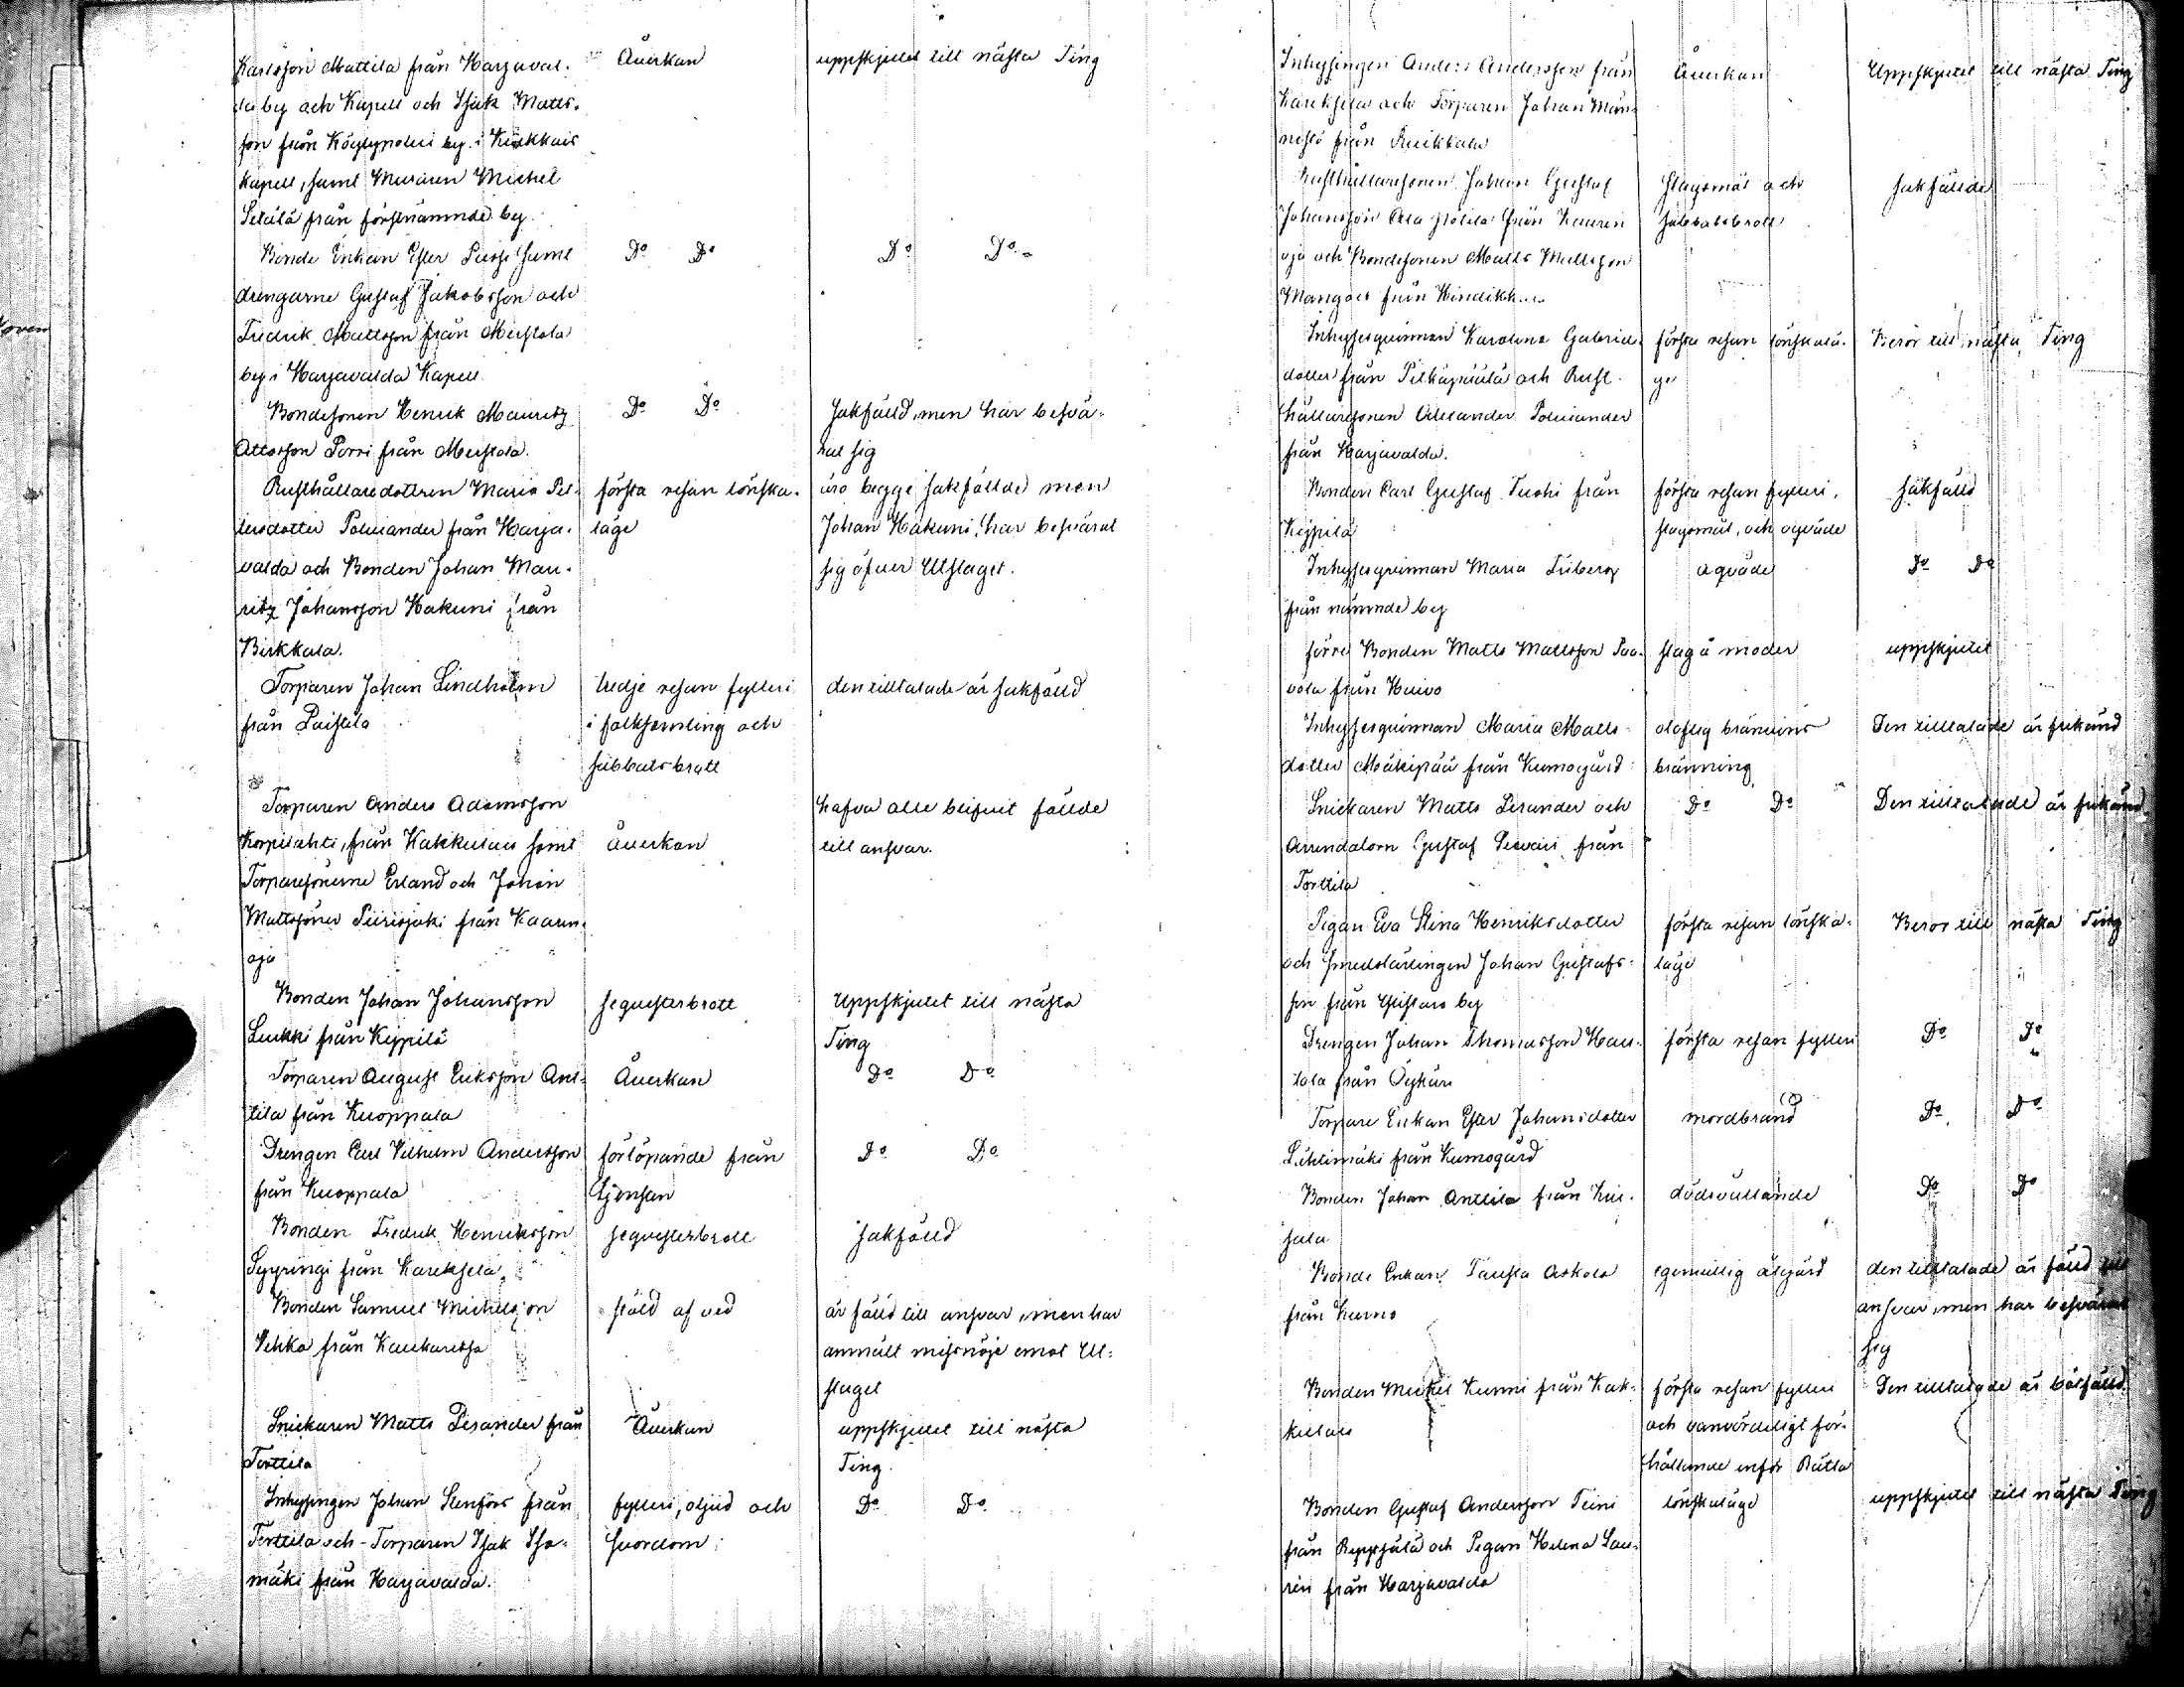 Karlsson Mattila från Harjaval-
da by och Kapell och Isak Matts-
son från Köylypolvi by i Kiukkais
kapell, samt Muraren Michel
Setälä från förstnämnde by.
Åverkan
uppskjutet till nästa Ting
Bonde Enkan Ester samt
drengarne Gustaf Jakobsson och
Fredrik Mattsson från Merstola
by i Harjavalda Kapell.
Do Do
Do Do
Bondesonen Henrik Mauritz
Attosson Porri från Merstola.
Do Do
sakfälld, men har besvä-
rat sig
Rusthållaredottren Maria Pet-
tersdotter Poleiander från Harja-
valda och Bonden Johan Mau-
ritz Johansson Hakuni från
Birkkala.
första resan lönska-
läge
äro begge sakfällde men
Johan Hakuni har besvärat
sig öfver Utslaget.
Torparen Johan Lindholm
från Paistila
tredje resan fylleri
i folksamling och
sabbatsbrott
den tilltalade är sakfälld
Torparen Anders Adamsson
Korpilahti, från Kakkulais samt
Torparesönerne Erland och Johan
Mattsöner Piirisjoki från Kaaren-
oja
åverkan
hafva alle blifvit fällde
till ansvar.
Bonden Johan Johansson
Luukki från Keppilä
sequesterbrott
Uppskjutet till nästa
Ting
Torparen August Eriksson Ant-
tila från Kuoppala
Åverkan
Do Do
Drengen Carl Vilhelm Andersson
från Kuoppala
förlöpande från
tjensten
Do Do
Bonden Fredrik Henriksson
Syyringi från Kareksela
sequesterbrott
sakfälld
Bonden Samuel Michelsson
Vehka från Kaukaretsa
stöld af ved
är fälld till ansvar, men har
anmält missnöje emot Ut-
slaget
Snickaren Matts Lesander från
Torttila
Åverkan
uppskjutet till nästa
Ting.
Inhysingen Johan Stenfors från
Torttila och Torparen Isak Iso-
mäki från Harjavalda.
fylleri, oljud och
svordom
Do Do
Inhysingen Anders Andersson från
Kareksela och Torparen Johan Män-
nistö från Ruikkala
Åverkan
Uppskjutet till nästa Ting
Rusthållaresonen Johan Gustaf
Johansson Ala från Kaaren
oja och Bondesonen Matts Mattsson
från
slagsmål och
sabbatsbrott
sakfällde
Inhysesqvinnan Karolina Gabriels
dotter från och Rust-
hållaresonen Alexander Poleiander
från Harjavalda.
första resan lönskalä-
ge
Beror till nästa Ting
Bonden Carl Gustaf Tuohi från
Keppilä
första resan fylleri,
slagsmål, och oqväde
sakfälld
Inhysesqvinnan Maria
från nämnde by
oqväde
Do Do
förre Bonden Matts Mattsson Paa-
vola från
slag å moder
uppskjutet
Inhysesqvinnan Maria Matts-
dotter Mäkipää från Kumogård
oloflig brännvins
bränning
Den tilltalade är frikänd
Snickaren Matts Lesander och
Arrendatorn Gustaf från
Torttila
Do Do
Den tilltalade är frikänd
Pigan Eva Stina Henriksdotter
och Smedslärlingen Johan Gustafs-
son från by
första resan lönska-
läge
Beror till nästa Ting
Drengen Johan Thomasson Hau-
tala från
första resan fylleri
Do Do
Torpare Enkan Ester Johansdotter
Lähtimäki från Kumogård
mordbrand
Do Do
Bonden Johan Anttila från
sala
dödsvållande
Do Do
Bonde Enkan Askola
från Kumo
egenvillig åtgärd
den tilltalade är fälld till
ansvar, men har besvärat
sig
Bonden Michel Kunni från Kak-
kulais
första resan fylleri
och vanvördeligt för-
hållande inför Rätta
Den tilltalade är botfälld
Bonden Gustaf Andersson Teini
från och Pigan Helena Lau-
rén från Harjavalda
lönskaläge
uppskjutet till nästa Ting